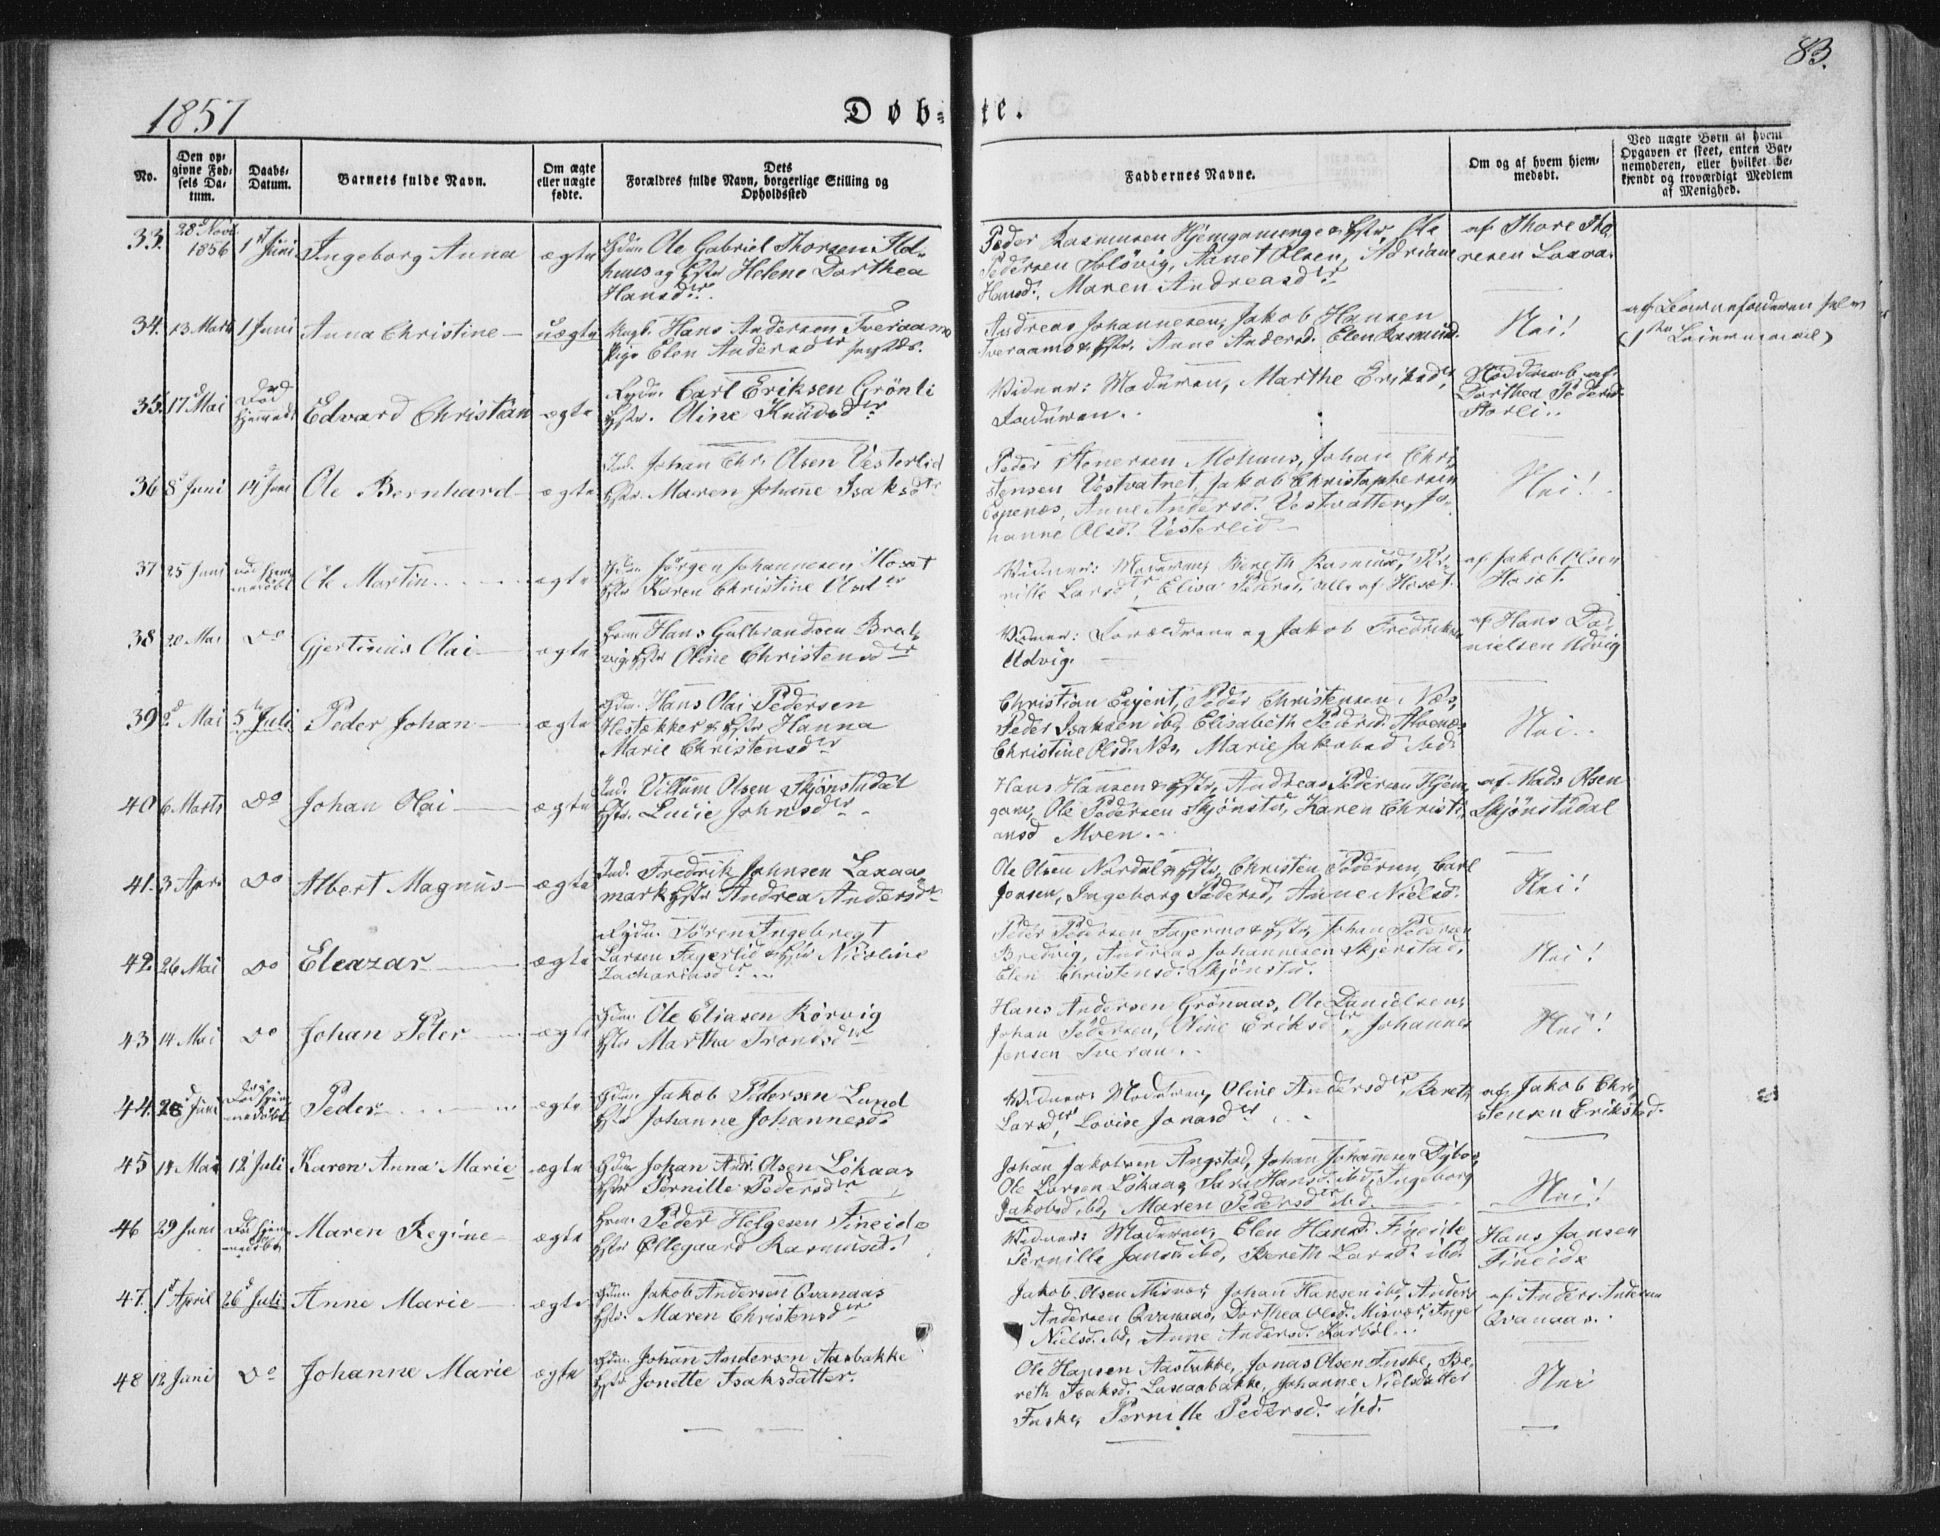 83.
1857
Døb=te.
No.
Den op-
givne Fød-
sels Da-
tum.
Daabs-
Datum.
Barnets fulde Navn.
Om ægte
eller uægte
fødte.
Dets
Forældres fulde Navn, borgerlige Stilling og
Opholdssted
Faddernes Navne.
Om og af hvem hjem-
medøbt.
Ved uægte Børn at hvem
Opgaven er skeet, enten Bar-
nemoderen, eller hvilket be-
kjendt og troværdigt Medlem
af Menighed.
33. 28d Novr 1856 1st Juni Ingeborg Anna ægte
Ole Gabriel Thorsen
og Helene Dorthea
Hansdr
Peder Rasmusen Hjemgam Ole
Pedersen Anet Olsen, Adriane
Hansd. Maren Andreasdr
af Thore Tho-
resen
34. 13 Marts 1 Juni Anna Christine uægte
Ungk. Hans Andersen Tveraamo
Pige Elen Andersdr
Andreas Johannesen, Jakob Hansen
Tveraamo & Anne Andersd. Elen Rasmusd.
Nei!
35. 17d Mai Død Edvard Christian ægte
Carl Eriksen Grönli
Oline Knudsdr
Vidner: Moderen, Marthe Eriksdr
Faderen.
Nøddaab af
Dorthea Pedersd.
Storli.
36 8d Juni 14d Juni Ole Bernhard ægte
Ind. Johan Chr. Olsen Vesterlid
Maren Johanne Isaksdtr
Peder Stenersen Mohuus, Johan Chri-
stensen Vestvatnet, Jakob Christophersen
Anne Andersd. Vestvatten, Jo-
hanne Olsd. Vesterlid
Nei!
37 25 Juni Ole Martin ægte
Jörgen Johannesen Hoset
Karen Christine Olsdr
Vidner: Moderen, Bereth Rasmusd,
Larsdr, Elisa Pedersd, alle af Hoset.
af Jakob Olsen
Hoset.
38 20 Mai Do Gjertinius Olai ægte
Hans Gulbrandsen Bred-
vig Oline Christensdr
Vidner: Forældrene og Jakob Fredriksen
Udvig.
af Hans Da-
nielsen Udvig
39 2d Mai 5te Juli Peder Johan ægte
Hans Olai Pedersen
Hanna
Marie Christensdr
Christian Peder Christensen Næs,
Peder Isaksen ibd, Elisabeth Pedersd.
Christine Olsd. Næs, Marie Jakobsd ibd.
Nei.
40 6 Marts Do Johan Olai ægte
Ind. Villum Olsen Skjönstudal
Lucie Johnsdr
Hans Hansen & Andreas Pedersen Hjem-
gam, Ole Pedersen Skjönstu, Karen Christi-
ansd Moen.
af Mads Olsen
Skjönstudal
41. 3 April Do Albert Magnus ægte
Ind. Fredrik Johnsen Laxaa-
mark Andrea Andersdr
Ole Olsen Nordal & Christen Pedersen, Carl
Jensen, Ingeborg Pedersd, Anne Nielsd.
Nei!
42. 26 Mai Do Eleazar ægte
Sören Ingebregt
Larsen Fagerlid & Nicoline
Zachariasdr
Peder Pedersen Fagermo & Johan Pedersen
Bredvig, Andreas Johannesen Skjerstad,
Elen Christensd. Skjönstu.
Nei!
43 14 Mai Do Johan Peter ægte
Ole Eliasen Körvig
Martha Trondsdr
Hans Andersen Grönaas, Ole Danielsen,
Johan Pedersen, Oline Eriksdr, Johannes
Jensen Tveraa.
Nei!
44. 28d Juni Peder ægte
Jakob Pedersen Lund
Johanne Johannesd.
Vidner: Moderen, Oline Andersdr, Bereth
Larsdr, Lovise Jonasdr
af Jakob Chri-
stensen Erikstad.
45 14 Mai 12te Juli Karen Anna Marie ægte
Johan Andr. Olsen Lökaas
Pernille Pedersdr
Johan Jakobsen Angstad, Johan Johannesen
Ole Larsen Lökaas, Hansd. ibd, Ingeborg
Jakobsd ibd, Maren Pedersdr ibd.
Nei!
46 29 Juni Maren Regine ægte
Peder Helgesen Fineide
Ollegaard Rasmusd.
Vidner: Moderen, Elen Hansd. Fineide
Pernille ibd, Bereth Larsd. ibd.
Hans Jansen
Fineide
47. 1st April 26d Juli Anne Marie ægte
Jakob Andersen Qvanaas
Maren Christensdr
Jakob Olsen Misvær, Johan Hansen ibd, Anders
Andersen Qvanaas, Dorthea Olsd. Misvær,
Nielsd. ibd, Anne Andersd. Karböl.
af Anders Andersen
Qvanaas.
48 12 Juni Do Johanne Marie ægte
Johan Andersen Aasbakke
Jonette Isaksdatter.
Ole Hansen Aasbakke, Jonas Olsen Fuske, Be-
reth Isaksd. Laxaabakke, Johanne Nielsdatter
Fuske, Pernille Pedersd. ibd.
Nei